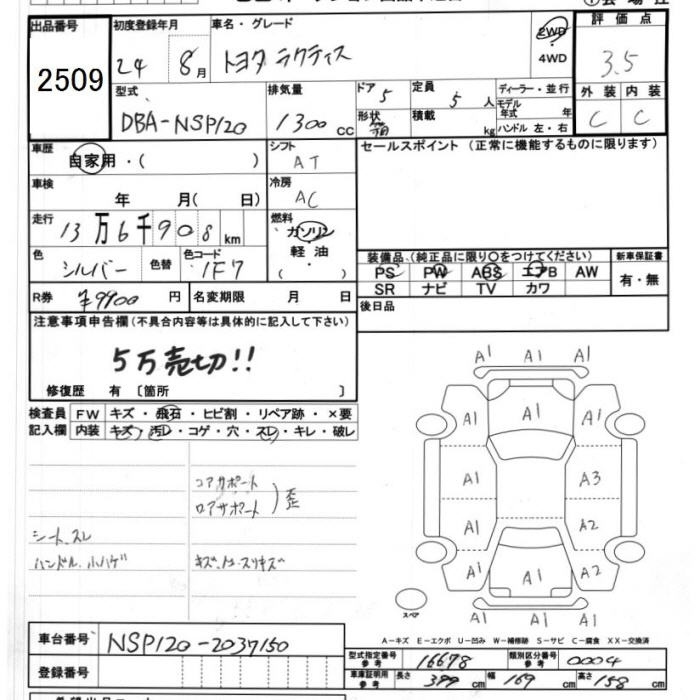 出品番号 初度登録年月 車名・グレード 評価点
2509 24 8月 トヨタ ラクティス 2WD 4WD 3.5
外装 内装
C C
型式 排気量 ドア 定員 ディーラー・並行
DBA-NSP120 1300cc 5 5人 モデル年式 年
形状 箱 積載 kg ハンドル 左・右
車歴 自家用・( ) シフト AT セールスポイント (正常に機能するものに限ります)
車検 年 月( 日) 冷房 AC
走行 13万6千908km 燃料 ガソリン・軽油
色 シルバー 色替 色コード 1F7
装備品 (純正品に限り○をつけてください) 新車保証書
PS PW ABS エアB AW 有・無
SR ナビ TV カワ
R券 ¥9900円 名変期限 月 日 後日品
注意事項申告欄(不具合内容等は具体的に記入して下さい)
5万売切!!
修復歴 有〔箇所 〕
検査員記入欄 FW キズ・飛石・ヒビ割・リペア跡・×要
内装 キズ・汚レ・コゲ・穴・スレ・キレ・破レ
コアサポート
ロアサポート ) 歪
シート、スレ
ハンドル、小ハゲ
A1 A1 A1
A1 A1 A1
A1 A3
A1 A2
A1 A1 A2
A1 A1 A1
スペア
A-キズ E-エクボ U-凹み W-補修跡 S-サビ C-腐食 XX-交換済
車台番号 NSP120-2037150
登録番号
型式指定番号 参考 16678 類別区分番号 参考 0004
車庫証明用 参考 長さ 399cm 幅 169cm 高さ 158cm